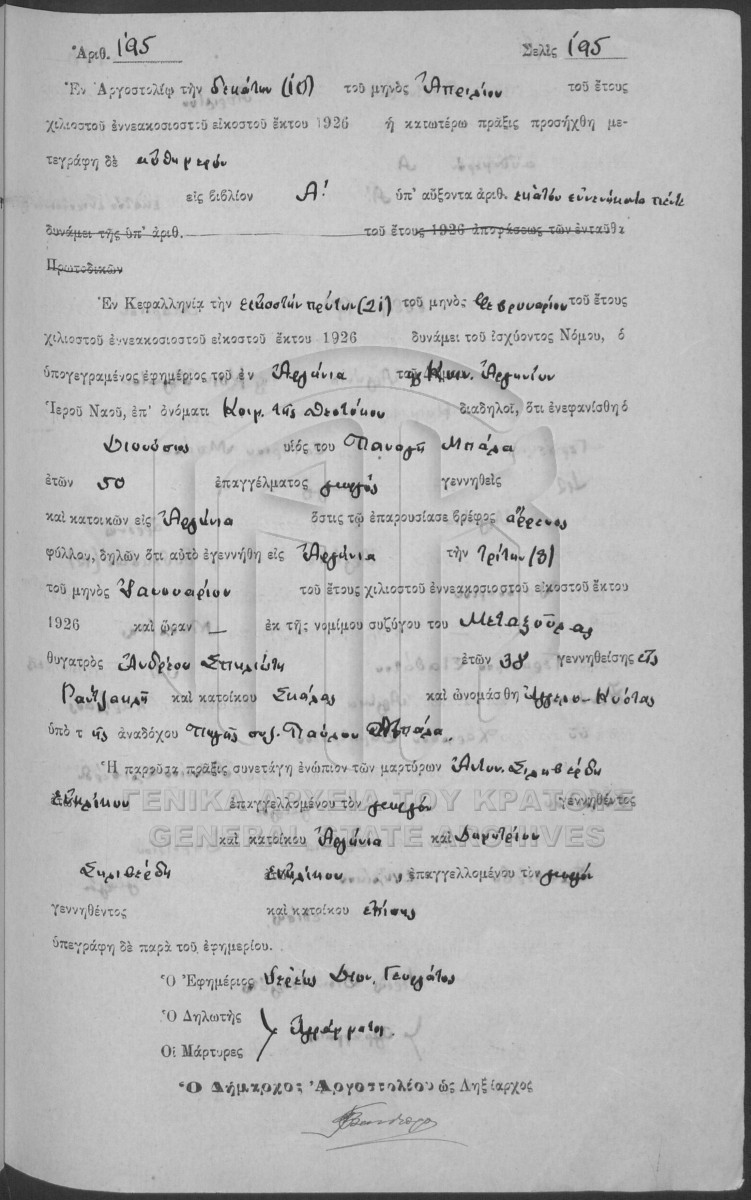 Ἀριθ. 195 Σελὶς 195
Ἐν Ἀργοστολίῳ τὴν δεκάτην (10) τοῦ μηνὸς Ἀπριλίου τοῦ ἔτους
χιλιοστοῦ ἐννεακοσιοστοῦ εἰκοστοῦ ἕκτου 1926 ἡ κατωτέρω πρᾶξις προσήχθη με-
τεγράφη δὲ αὐθημερὸν
εἰς βιβλίον Α! ὑπ' αὔξοντα ἀριθ. ἑκατὸν ἐννενήκοντα πέντε
δυνάμει τῆς ὑπ' ἀριθ. τοῦ ἔτους 1926 ἀποφάσεως τῶν ἐνταῦθα
Πρωτοδικῶν
Ἐν Κεφαλληνίᾳ τὴν εἰκοστὴν πρώτην (21) τοῦ μηνὸς Φεβρουαρίου τοῦ ἔτους
χιλιοστοῦ ἐννεακοσιοστοῦ εἰκοστοῦ ἕκτου 1926 δυνάμει τοῦ ἰσχύοντος Νόμου, ὁ
ὑπογεγραμένος ἐφημέριος τοῦ ἐν Ἀργίνια Κοιν. Ἀργινίων
Ἱεροῦ Ναοῦ, ἐπ' ὀνόματι Κοιμ. τῆς Θεοτόκου διαδηλοῖ, ὅτι ἐνεφανίσθη ὁ
Διονύσιος υἱός του Παναγῆ Μπάλα
ἐτῶν 50 ἐπαγγέλματος γεωργὸς γεννηθεὶς
καὶ κατοικῶν εἰς Ἀργίνια ὅστις τῷ ἐπαρουσίασε βρέφος ἄρρενος
φύλλου, δηλῶν ὅτι αὐτὸ ἐγεννήθη εἰς Ἀργίνια τὴν τρίτην (3)
τοῦ μηνὸς Ἰανουαρίου τοῦ ἔτους χιλιοστοῦ ἐννεακοσιοστοῦ εἰκοστοῦ ἕκτου
1926 καὶ ὥραν — ἐκ τῆς νομίμου συζύγου του Μεταξούλας
θυγατρὸς Ἀνδρέου ἐτῶν 38 γεννηθείσης εἰς
καὶ κατοίκου Σκάλας καὶ ὠνομάσθη
ὑπὸ τ ῆς ἀναδόχου Πηγῆς συζ. Παύλου Μπάλα.
Ἡ παροῦσα πρᾶξις συνετάγη ἐνώπιον τῶν μαρτύρων Ἀντων. Σιλιβέρδη
ἐνηλίκου ἐπαγγελλομένου τὸν γεωργὸν γεννηθέντος
καὶ κατοίκου Ἀργίνια καὶ Δημητρίου
Σιλιβέρδη ἐνηλίκου, ἐπαγγελλομένου τὸν γεωργὸν
γεννηθέντος καὶ κατοίκου ἐπίσης
ὑπεγράφη δὲ παρὰ τοῦ ἐφημερίου.
Ὁ Ἐφημέριος Ἱερεὺς Διον. Γεωργάτος
Ὁ Δηλωτὴς
Οἱ Μάρτυρες } Ἀγράμματοι.
Ὁ Δήμαρχος Ἀργοστολίου ὡς Ληξίαρχος
ΓΕΝΙΚΑ ΑΡΧΕΙΑ ΤΟΥ ΚΡΑΤΟΥΣ
GENERAL STATE ARCHIVES